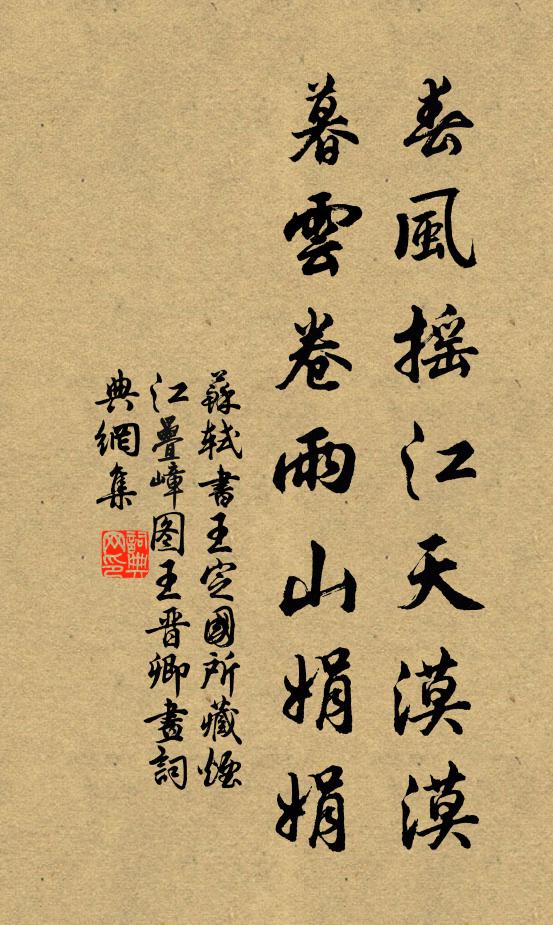 春風搖江天漠漠
暮雲卷雨山娟娟
蘇軾書王定國所藏煙
江疊嶂图王晋卿畫詞
典網集
詞典
网印